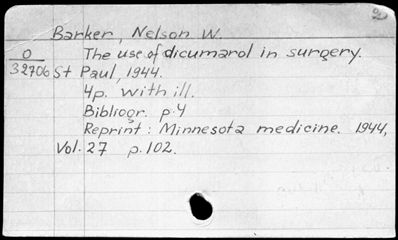 2
Barker, Nelson W.
O The use of dicumarol in surgery.
32706 St Paul, 1944.
4p. with ill.
Bibliogr. p.4
Reprint: Minnesota medicine. 1944,
Vol. 27 p. 102.